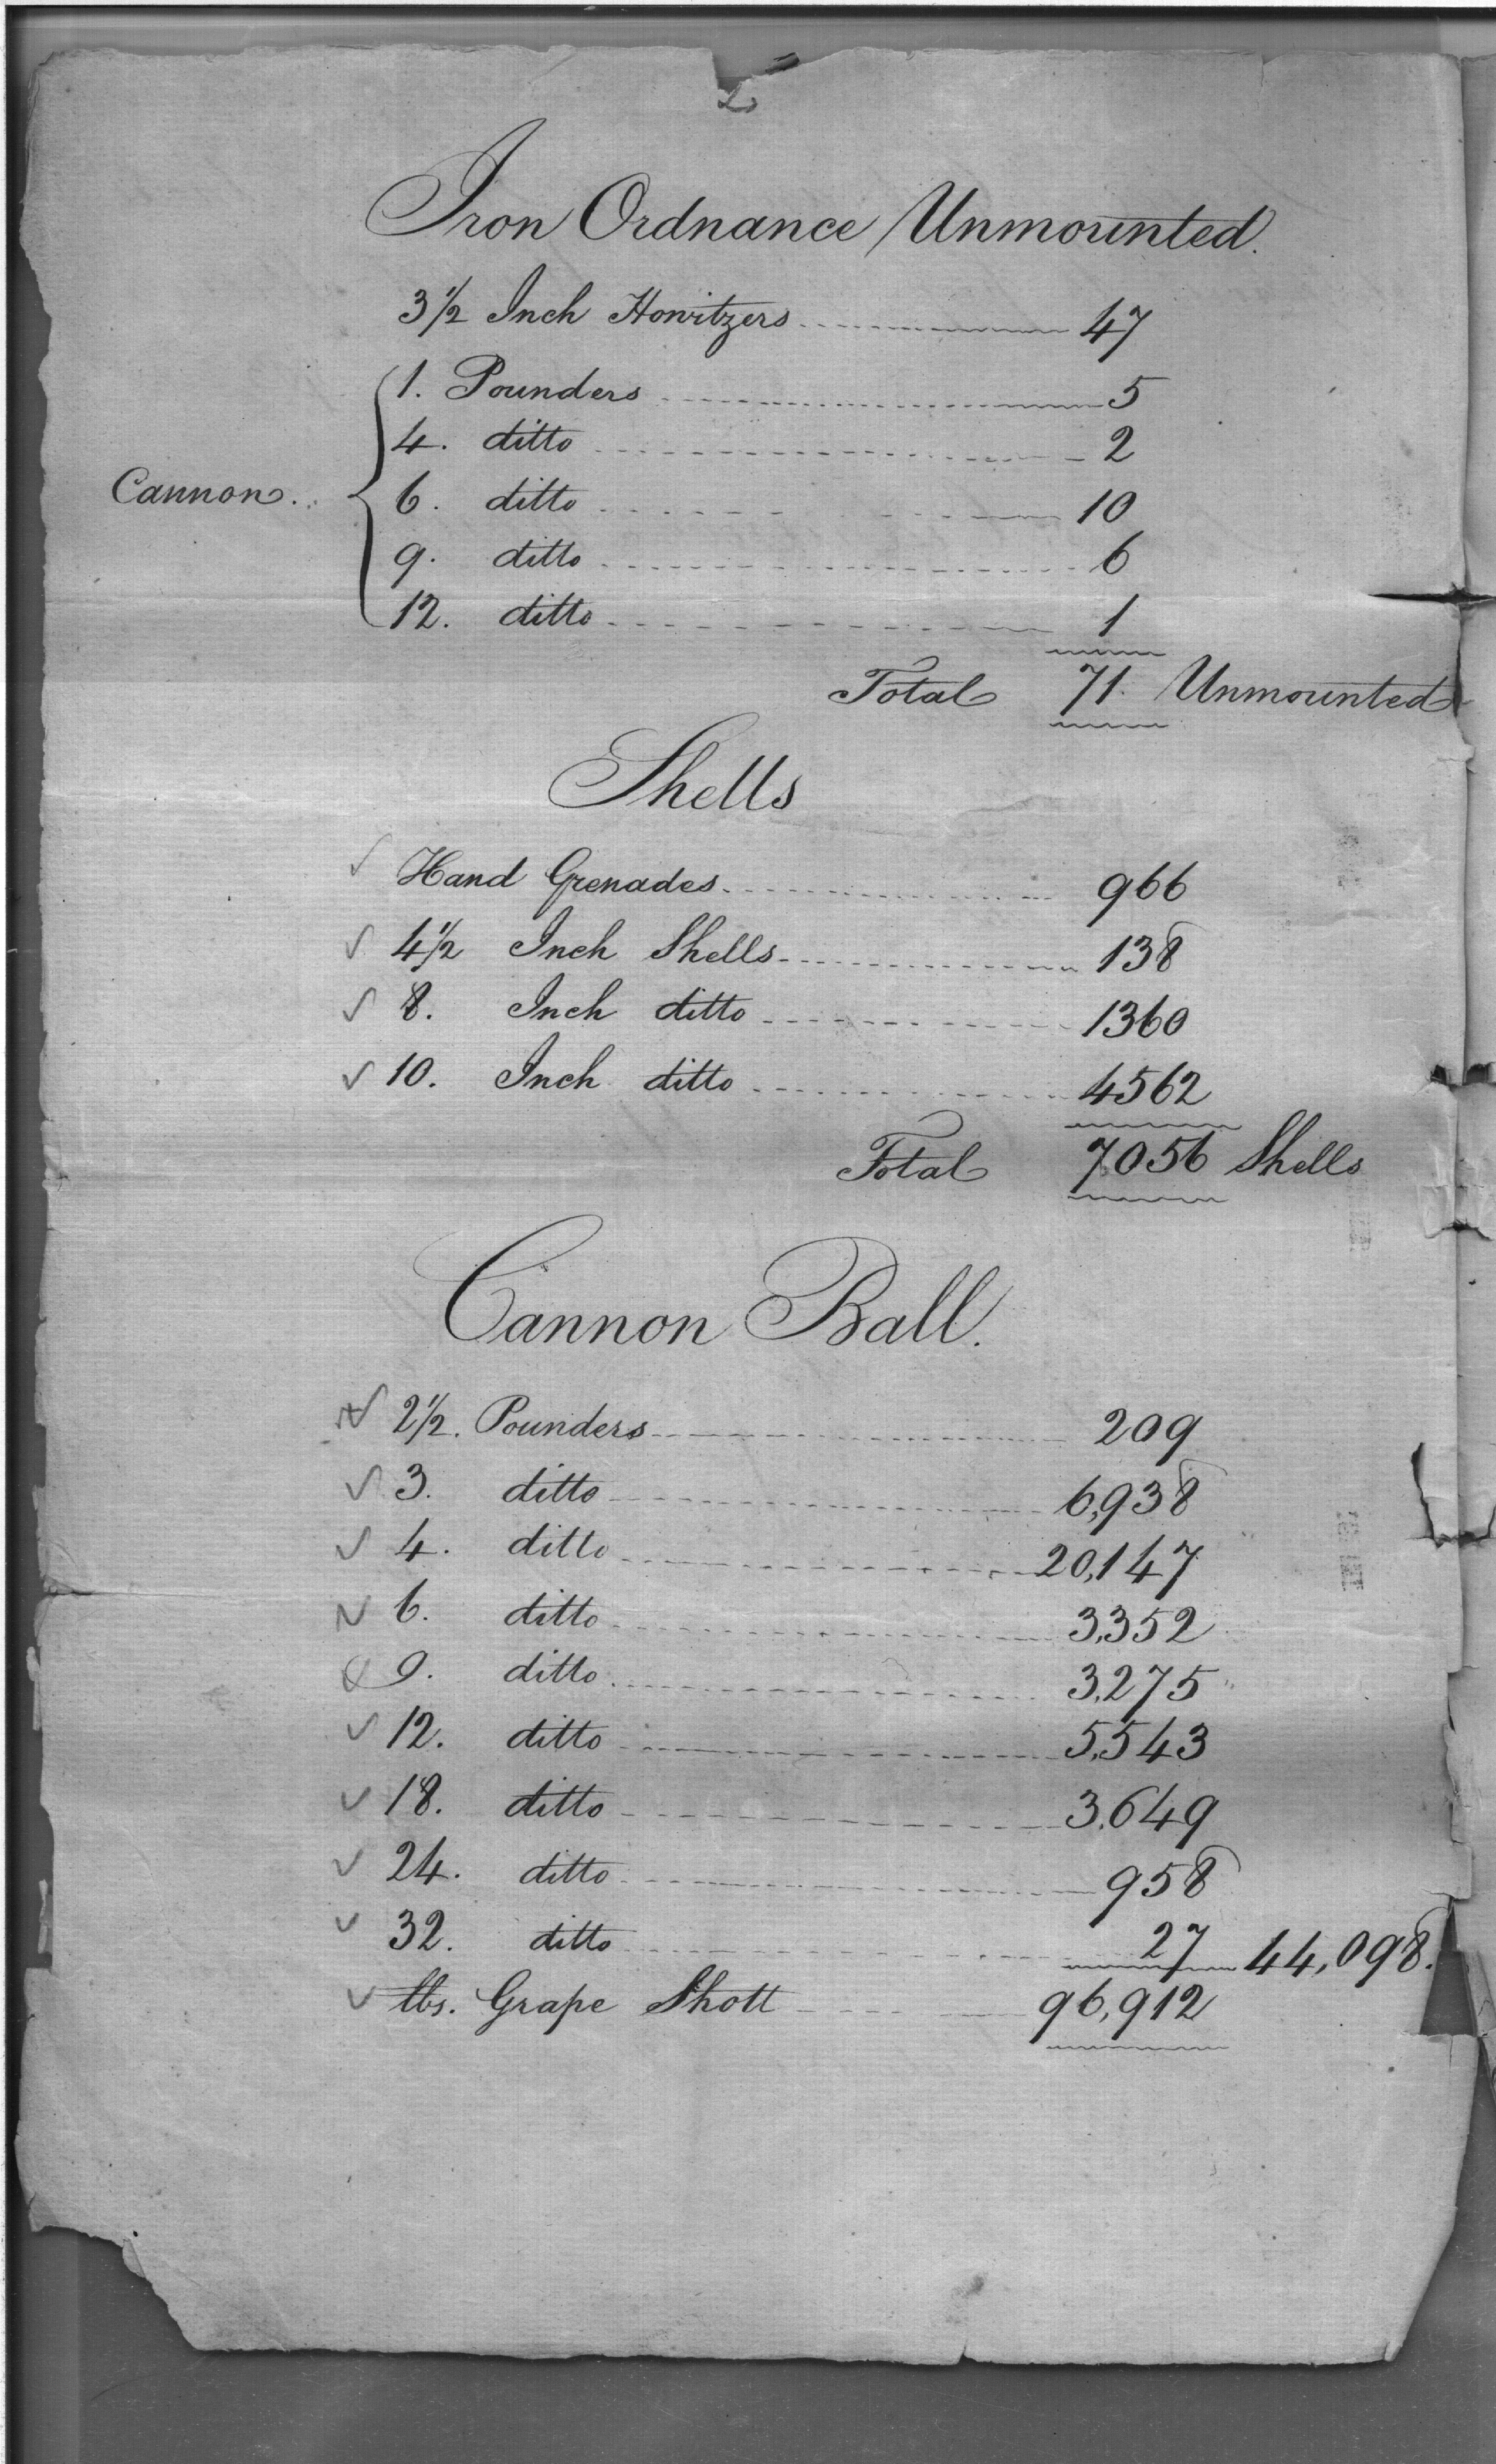 2
Iron Ordnance Unmounted.
3 1/2 Inch Howitzers 47
1. Pounders 5
4. ditto 2
Cannon. 6. ditto 10
9. ditto 6
12. ditto 1
Total 71. Unmounted
Shells
Hand Grenades 966
4 1/2 Inch Shells 138
8. Inch ditto 1360
10. Inch ditto 4562
Total 7056 Shells
Cannon Ball.
2 1/2. Pounders 209
3. ditto 6,938
4. ditto 20,147
6. ditto 3,352
9. ditto 3,275
12. ditto 5,543
18. ditto 3,649
24. ditto 958
32. ditto 27 44,098.
lbs. Grape Shott 96,912